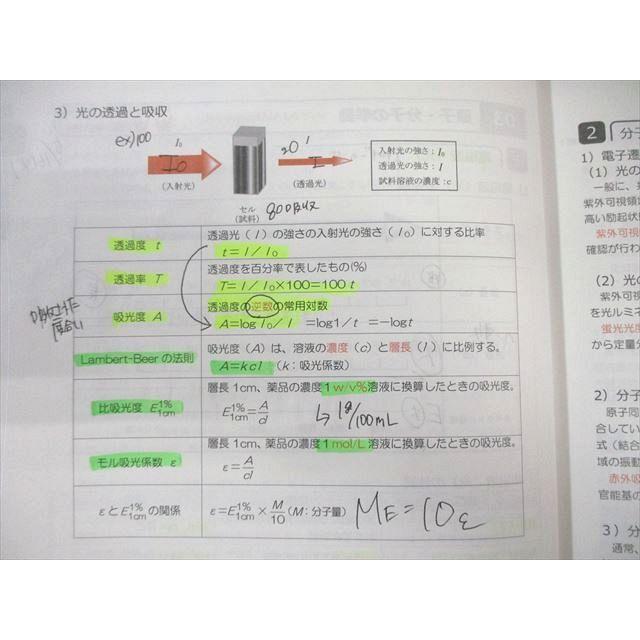 3) 光の透過と吸収
ex)100
I₀
I₀
(入射光)
20
I
I
(透過光)
入射光の強さ:I₀
透過光の強さ:I
試料溶液の濃度:c
セル
(試料)
80吸収
透過度 t
透過光(I)の強さの入射光の強さ(I₀)に対する比率
t=I/I₀
透過率 T
透過度を百分率で表したもの(%)
T=I/I₀×100=100 t
吸光度 A
透過度の逆数の常用対数
A=log I₀/I =log1/t =-logt
吸収した
度合い
Lambert-Beerの法則
吸光度(A)は、溶液の濃度(c)と層長(l)に比例する。
A=kcl (k:吸光係数)
比吸光度 E1%1cm
層長1cm、薬品の濃度1w/v%溶液に換算したときの吸光度。
E1%1cm=A/cl
↳1g/100mL
モル吸光係数 ε
層長1cm、薬品の濃度1mol/L溶液に換算したときの吸光度。
ε=A/cl
εとE1%1cmの関係
ε=E1%1cm×M/10(M:分子量)
ME=10ε
2 分子
1) 電子遷
(1) 光の
一般に、
紫外可視領域
高い励起状
紫外可視
確認が行わ
(2) 光の
紫外可視
を光ルミネ
蛍光光度
から定量分
2) 分子
原子同
合してい
式(結合
域の振動
赤外吸
官能基の
3) 分
通常、